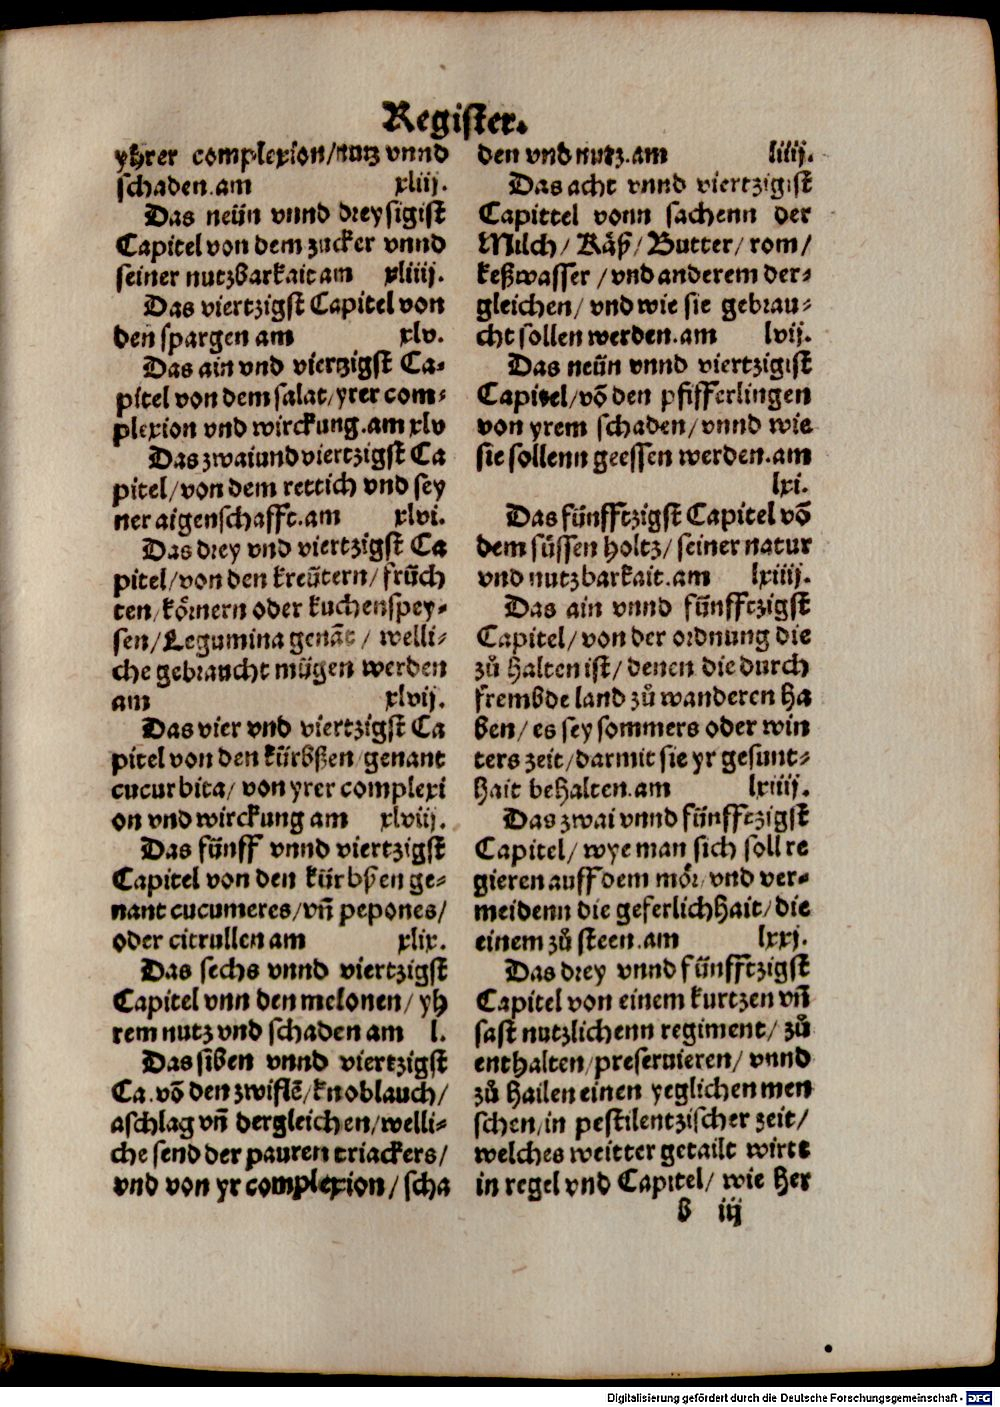 Register.
yhrer complexion/nutz vnnd
schaden.am xliij.
Das neün vnnd dreysigist
Capitel von dem zucker vnnd
seiner nutzbarkait am xliiij.
Das viertzigst Capitel von
den spargen am xlv.
Das ain vnd viertzigst Ca-
pitel von dem salat/yrer com-
plexion vnd wirckung.am xlv
Das zwaiund viertzigst Ca
pitel/von dem rettich vnd sey
ner aigenschafft.am xlvi.
Das drey vnd viertzigst Ca
pitel/von den kreütern/früch
ten/körnern oder kuchenspey-
sen/Legumina genāt/ welli-
che gebraucht mügen werden
am xlvij.
Das vier vnd viertzigst Ca
pitel von den kürbßen/genant
cucurbita/ von yrer complexi
on vnd wirckung am xlviij.
Das fünff vnnd viertzigst
Capitel von den kürbßen ge-
nant cucumeres/vn̄ pepones/
oder citrullen am xlix.
Das sechs vnnd viertzigst
Capitel vnn den melonen/ yh
rem nutz vnd schaden am l.
Das siben vnnd viertzigst
Ca.vō den zwiflē/knoblauch/
aschlag vn̄ dergleichen/welli-
che send der pauren triackers/
vnd von yr complexion/ scha
den vnd nutz.am liiij.
Das acht vnnd viertzigist
Capittel vonn sachenn der
Milch/ Käß/ Butter/ rom/
keßwasser /vnd anderem der-
gleichen/ vnd wie sie gebrau-
cht sollen werden.am lvij.
Das neün vnnd viertzigist
Capitel/vō den pfifferlingen
von yrem schaden/vnnd wie
sie sollenn geessen werden.am
lxi.
Das fünfftzigst Capitel vō
dem süssen holtz/ seiner natur
vnd nutzbarkait.am lxiiij.
Das ain vnnd fünfftzigst
Capitel/von der ordnung die
zů halten ist/ denen die durch
frembde land zů wanderen ha
ben/ es sey sommers oder win
ters zeit/darmit sie yr gesunt-
hait behalten.am lxiiij.
Das zwai vnnd fünfftzigst
Capitel/ wye man sich soll re
gieren auff dem mör/ vnd ver-
meidenn die geferlichhait/die
einem zů steen.am lxxj.
Das drey vnnd fünfftzigst
Capitel von einem kurtzen vn̄
fast nutzlichenn regiment/ zů
enthalten/preseruieren/ vnnd
zů hailen einen yeglichen men
schen/in pestilentzischer zeit/
welches weitter getailt wirtt
in regel vnd Capitel/ wie her
b iij
Digitalisierung gefördert durch die Deutsche Forschungsgemeinschaft - DFG